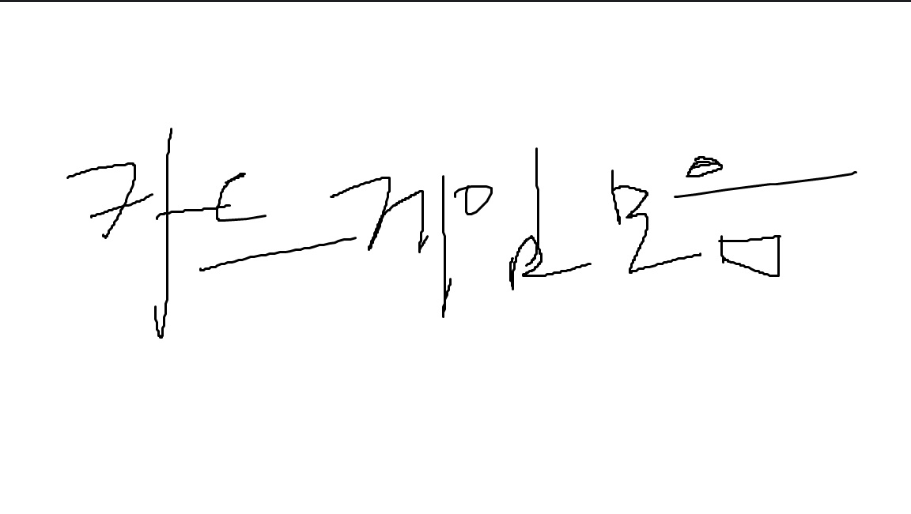 카드 게임 모음